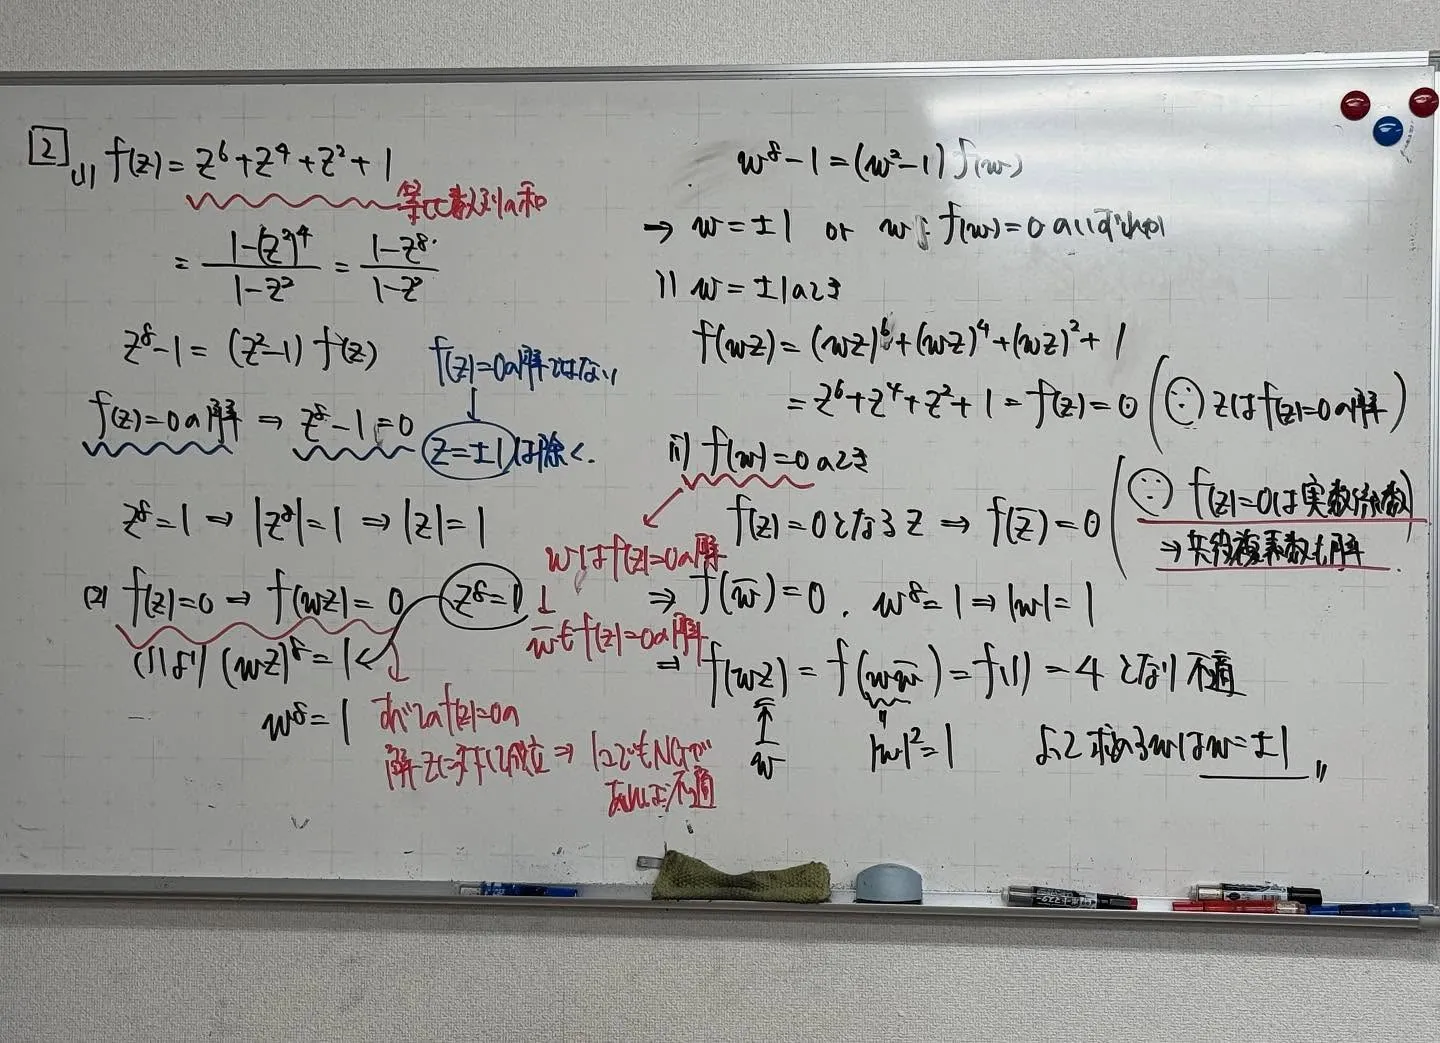 2
(1) f(z) = z⁶+z⁴+z²+1
等比数列の和
= 1-(z²)⁴/1-z² = 1-z⁸/1-z²
z⁸-1 = (z²-1) f(z)
f(z)=0の解ではない
↓
f(z)=0の解 ⇒ z⁸-1=0
z=±1は除く.
z⁸=1 ⇒ |z⁸|=1 ⇒ |z|=1
(2) f(z)=0 ⇒ f(wz)=0
z⁸=1
(1)より (wz)⁸=1
w⁸=1
すべてのf(z)=0の
解zに対して成立 ⇒ 1つでもNGが
あれば不適
w⁸-1=(w²-1)f(w)
→ w=±1 or w は f(w)=0のいずれか
i) w=±1のとき
f(wz)=(wz)⁶+(wz)⁴+(wz)²+1
=z⁶+z⁴+z²+1=f(z)=0 (∵ zはf(z)=0の解)
ii) f(w)=0のとき
wはf(z)=0の解
↓
w̄もf(z)=0の解
f(z)=0となるz ⇒ f(z̄)=0 (∵ f(z)=0は実数係数
⇒共役複素数も解
⇒ f(w̄)=0. w⁸=1⇒|w|=1
⇒ f(wz)=f(ww̄)=f(1)=4 となり不適
↑
w̄
|w|²=1
よって求めるwはw=±1